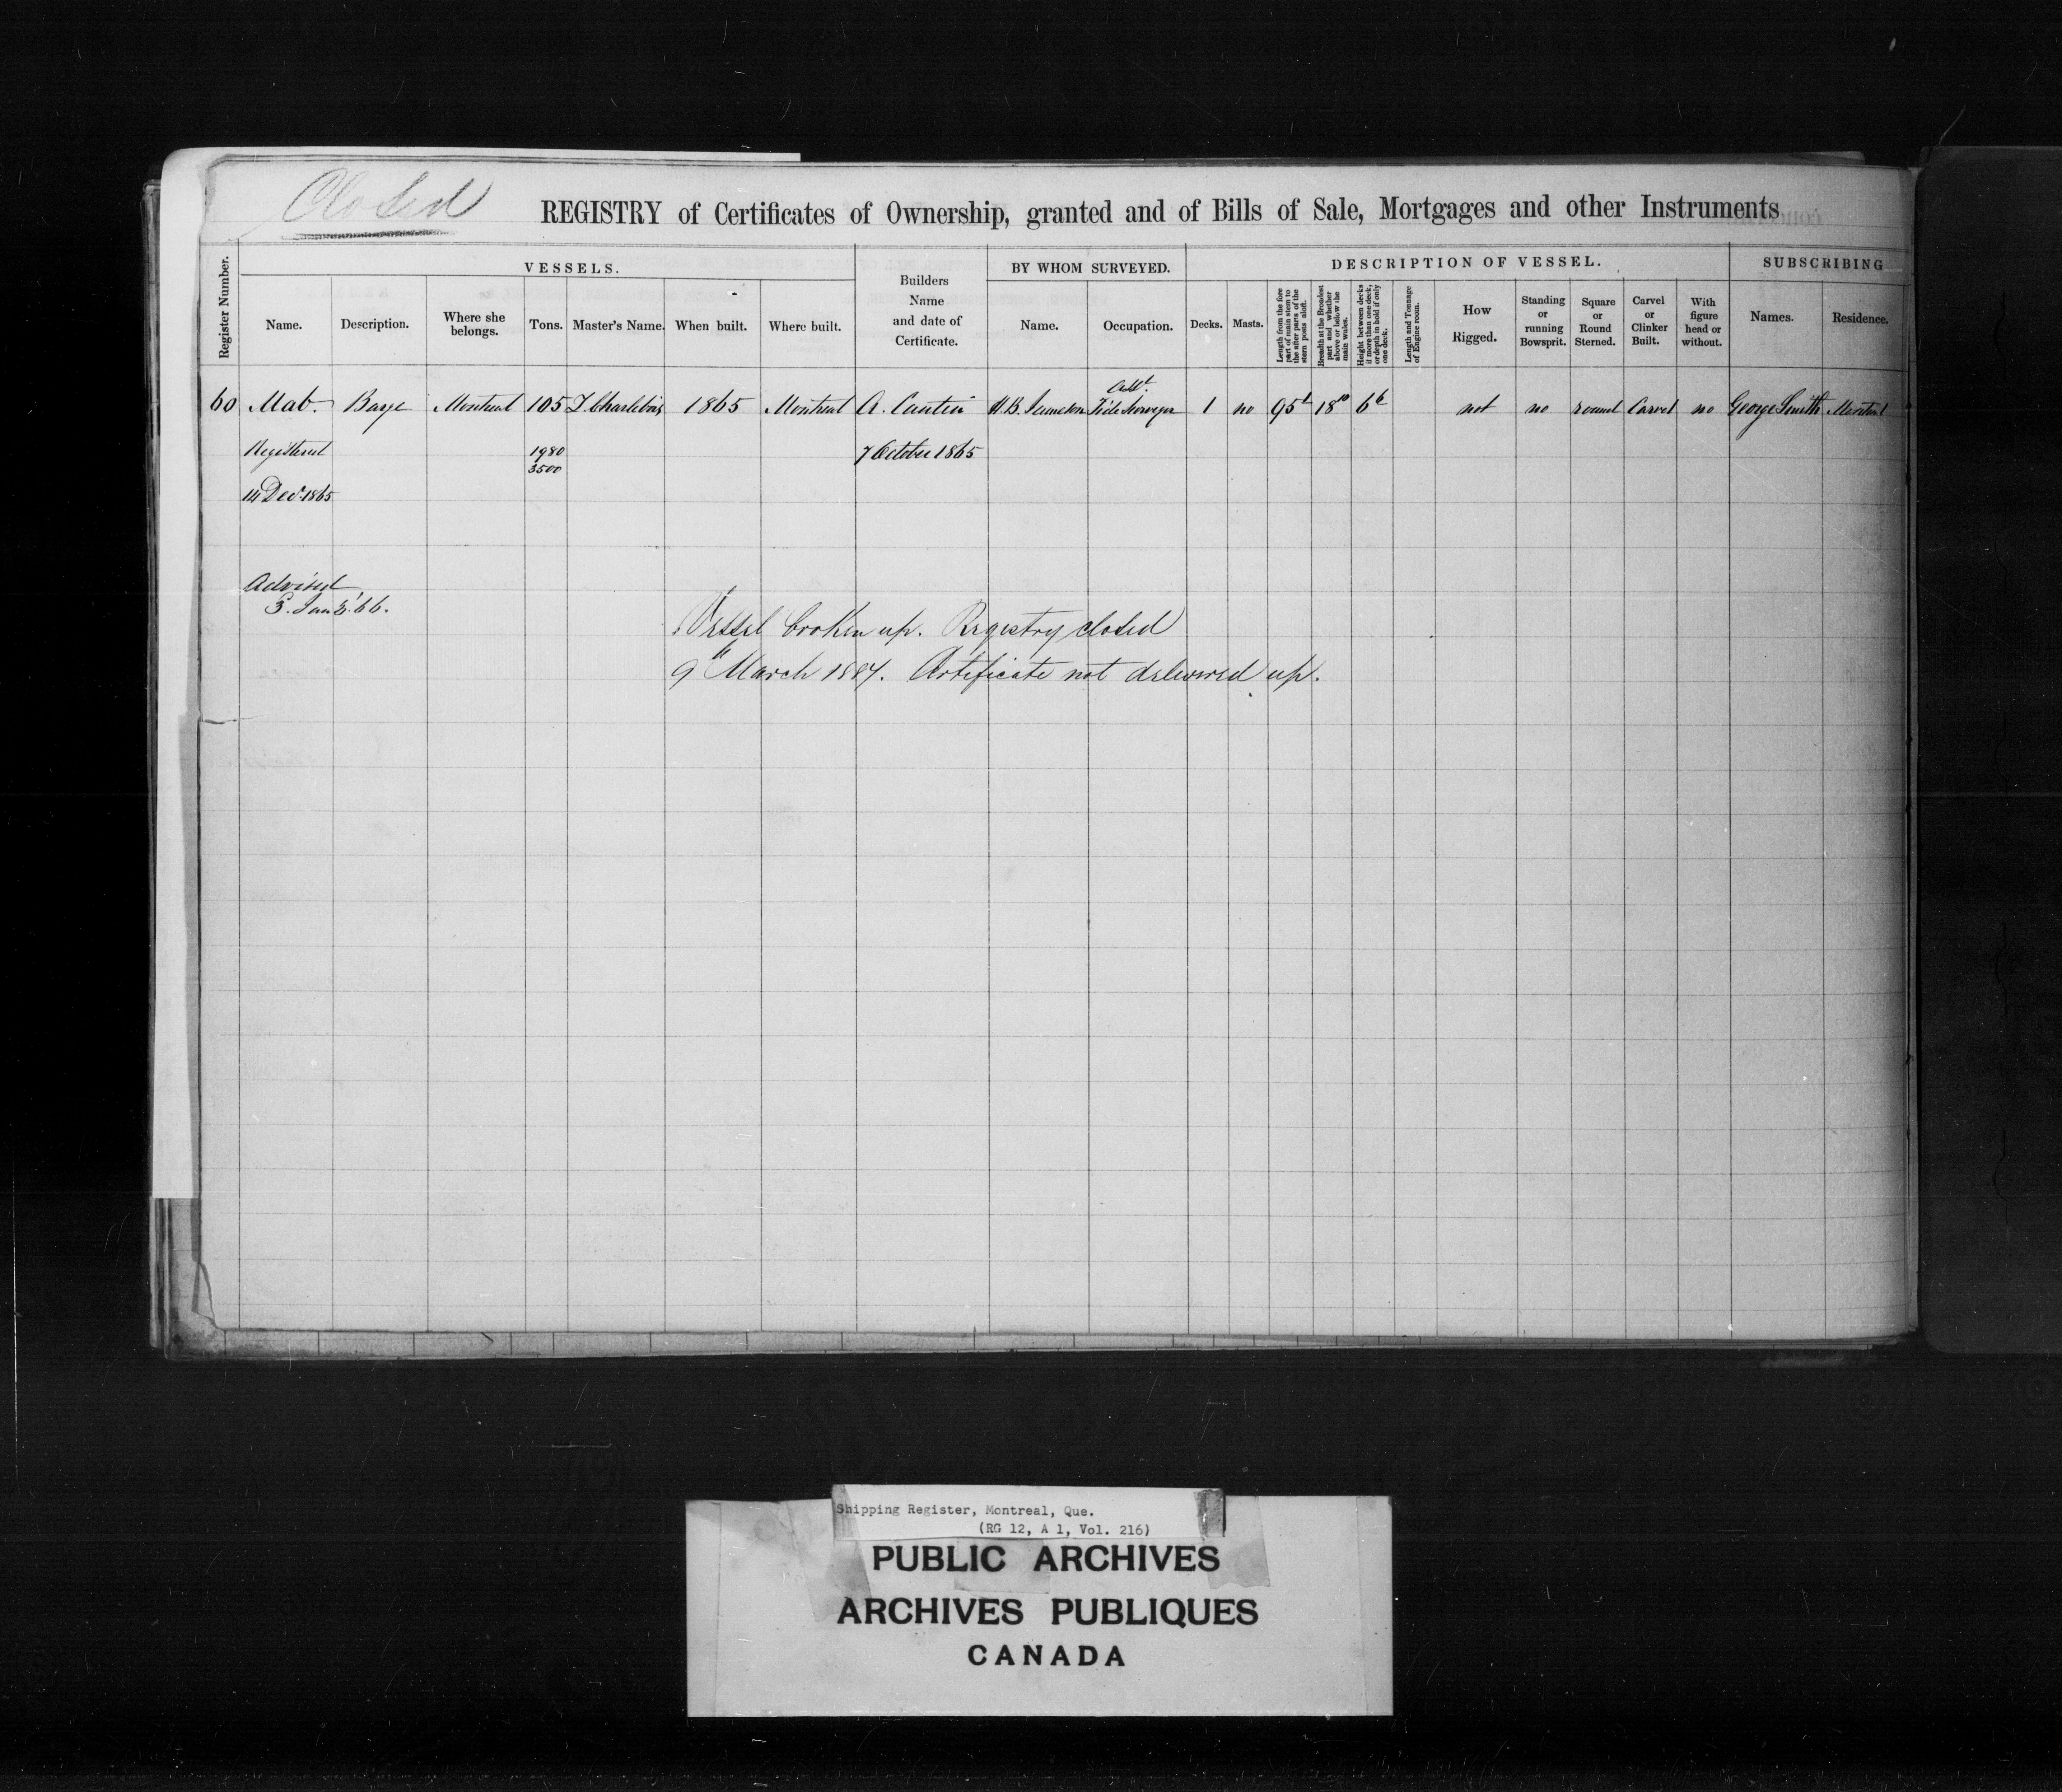 Closed
REGISTRY of Certificates of Ownership, granted and of Bills of Sale, Mortgages and other Instruments
Register Number.
VESSELS.
Name.
Description.
Where she belongs.
Tons.
Master's Name.
When built.
Where built.
Builders Name and date of Certificate.
BY WHOM SURVEYED.
Name.
Occupation.
DESCRIPTION OF VESSEL.
Decks.
Masts.
Length from the fore part of main stem to the after parts of the stern posts aloft.
Breadth at the Broadest part and whether above or below the main wales.
Height between decks if more than one deck, or depth in hold if only one deck.
Length and Tonnage of Engine room.
How Rigged.
Standing or running Bowsprit.
Square or Round Sterned.
Carvel or Clinker Built.
With figure head or without.
SUBSCRIBING
Names.
Residence.
60 Mab. Barge Montreal 105 Charlebois 1865 Montreal A. Cantin H.B. Tide Surveyor 1 no 95 18 10 6 6 not no round Carvel no George Smith Montreal
Registered 1980 7 October 1865
3500
14 Dec. 1865
Advised
3. Jan '66.
Vessel broken up. Registry closed
9th March 1884. Certificate not delivered up.
Shipping Register, Montreal, Que.
(RG 12, A 1, Vol. 216)
PUBLIC ARCHIVES
ARCHIVES PUBLIQUES
CANADA